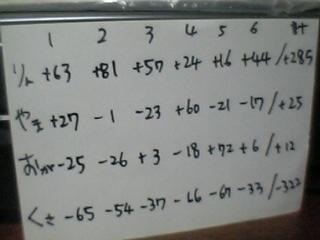 1 2 3 4 5 6 計
りん +63 +81 +57 +24 +16 +44 / +285
やま +27 -1 -23 +60 -21 -17 / +25
-25 -26 +3 -18 +72 +6 / +12
くさ -65 -54 -37 -66 -67 -33 / -322